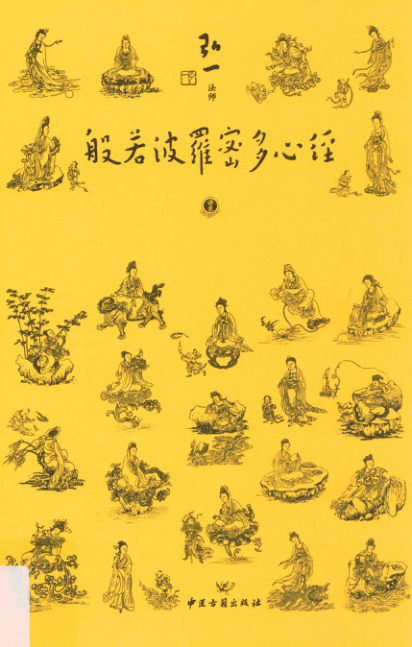 弘一
法师
般若波羅密多心経
中医古籍出版社